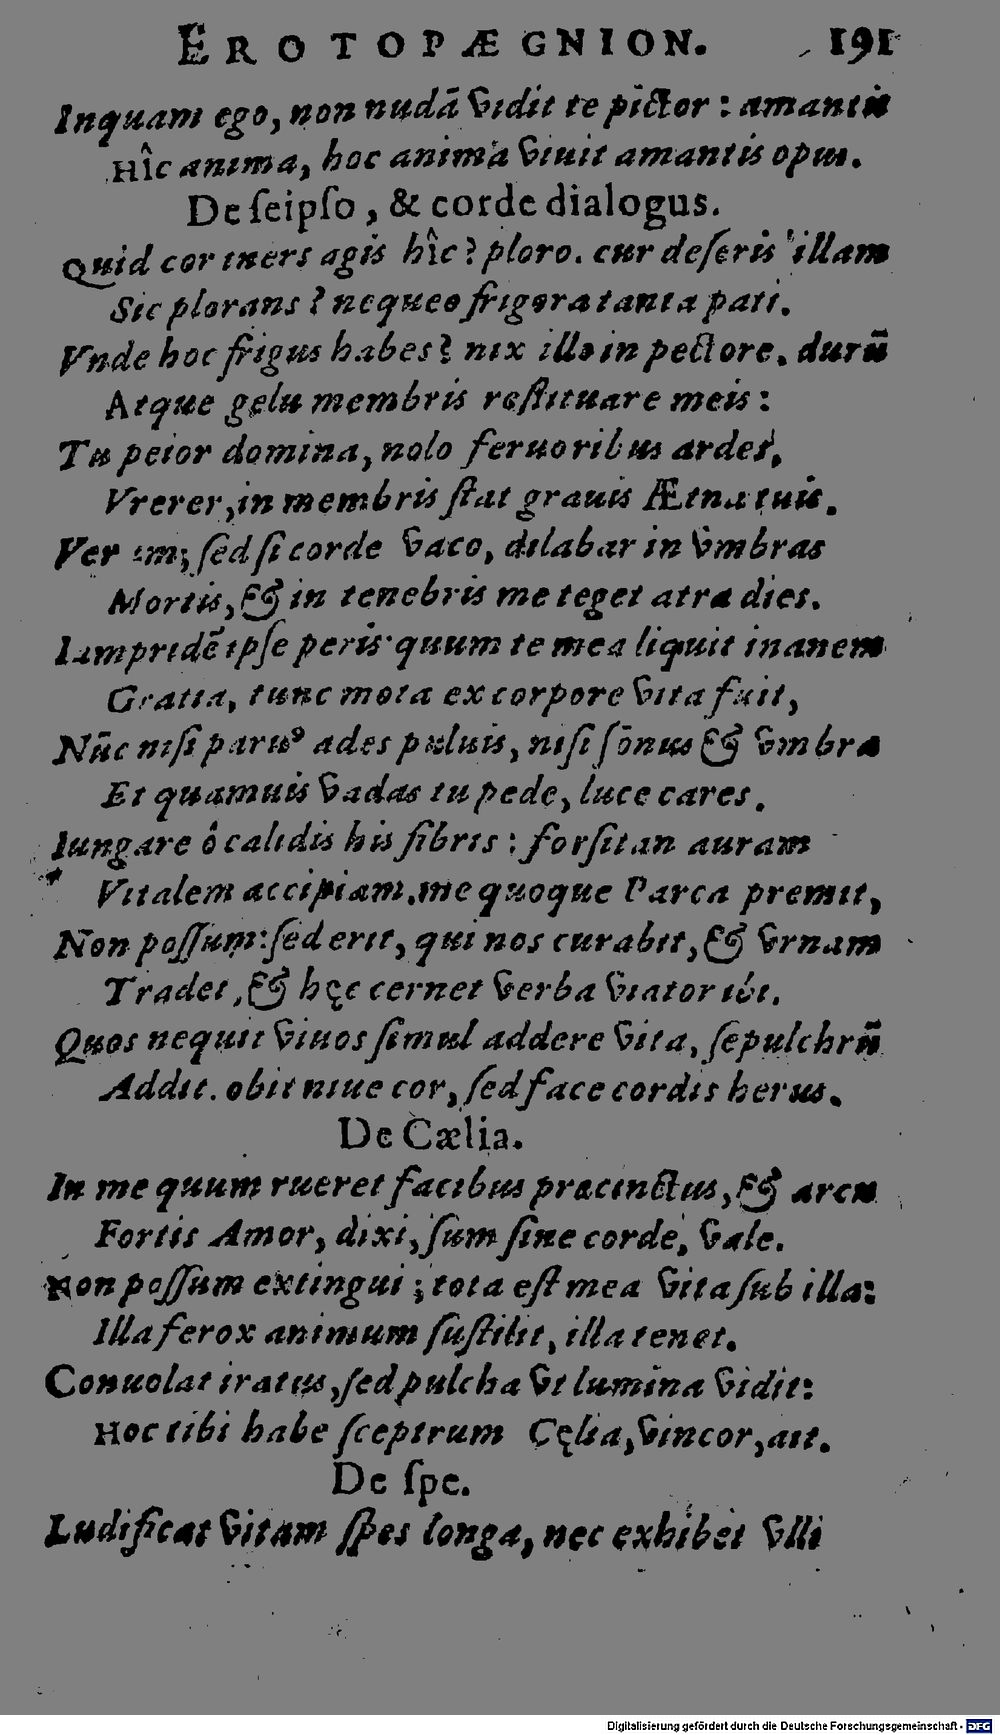 EROTOPÆGNION. 191
Inquam ego, non nudā vidit te pictor : amantis
Hîc anima, hoc anima viuit amantis opus.
De ſeipſo, & corde dialogus.
Quid cor iners agis hîc? ploro. cur deſeris illam
Sic plorans? nequeo frigora tanta pati.
Vnde hoc frigus habes? nix illo in pectore. durū
Atque gelu membris reſtituare meis :
Tu peior domina, nolo feruoribus ardet,
Vrerer, in membris ſtat grauis Ætna tuis.
Ver im; ſed ſi corde vaco, dilabar in vmbras
Mortis, & in tenebris me teget atra dies.
Iampridē ipſe peris quum te mea liquit inanem
Gratia, tunc mota ex corpore vita fuit,
Nūc niſi paruꝰ ades puluis, niſi ſonus & vmbra
Et quamuis vadas tu pede, luce cares.
Iungare ô calidis his fibris : forſitan auram
Vitalem accipiam. me quoque Parca premit,
Non poſſum: ſed erit, qui nos curabit, & vrnam
Tradet, & hęc cernet verba viator ibi.
Quos nequit viuos ſimul addere vita, ſepulchrū
Addit. obit niue cor, ſed face cordis herus.
De Cælia.
In me quum rueret facibus præcinctus, & arcu
Fortis Amor, dixi, ſum ſine corde, vale.
Non poſſum extingui ; tota eſt mea vita ſub illa:
Illa ferox animum ſuſtilit, illa tenet.
Conuolat iratus, ſed pulcha vt lumina vidit:
Hoc tibi habe ſceptrum Cęlia, vincor, ait.
De ſpe.
Ludificat vitam ſpes longa, nec exhibet vlli
Digitalisierung gefördert durch die Deutsche Forschungsgemeinschaft - DFG